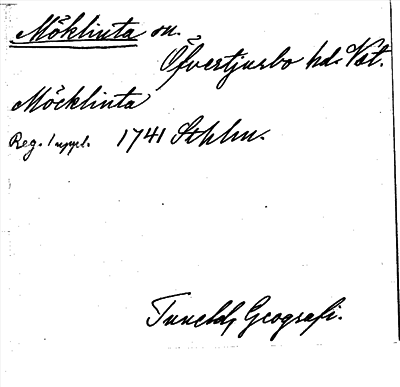 Möklinta sn.
Öfvertjurbo hd. Vst.
Möcklinta
Reg. 1 uppl. 1741 Sthlm.
Tunelds Geografi.